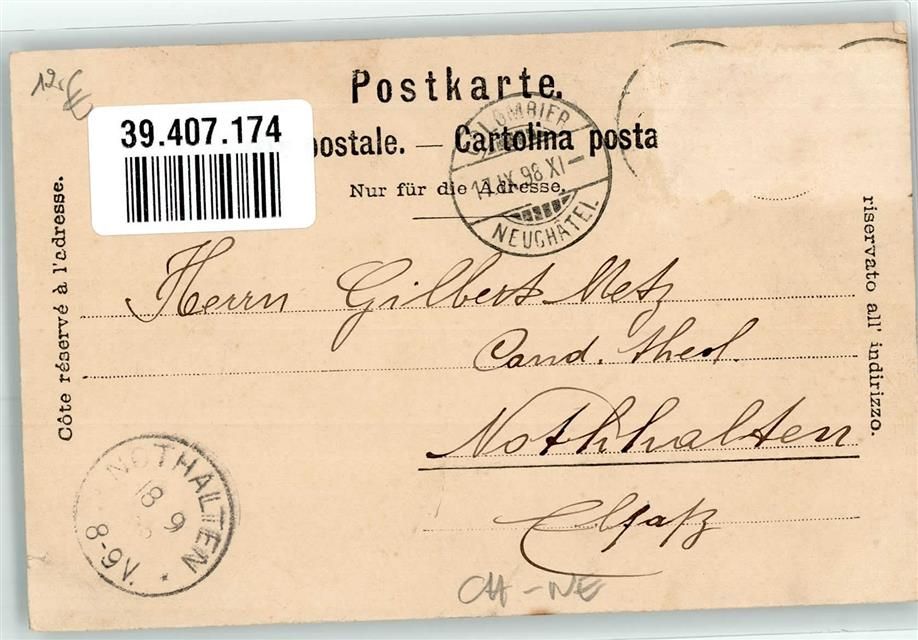 12.-
Postkarte.
39.407.174
postale. — Cartolina posta
Nur für die Adresse.
COLOMBIER
17. IX. 98 XI–
NEUCHÂTEL
Côte réservé à l'adresse.
riservato all' indirizzo.
Herrn Gilbert Metz
Cand. theol.
Nothhalten
Elsaß
NOTHALTEN
18 9
8-9V.
CH - NE